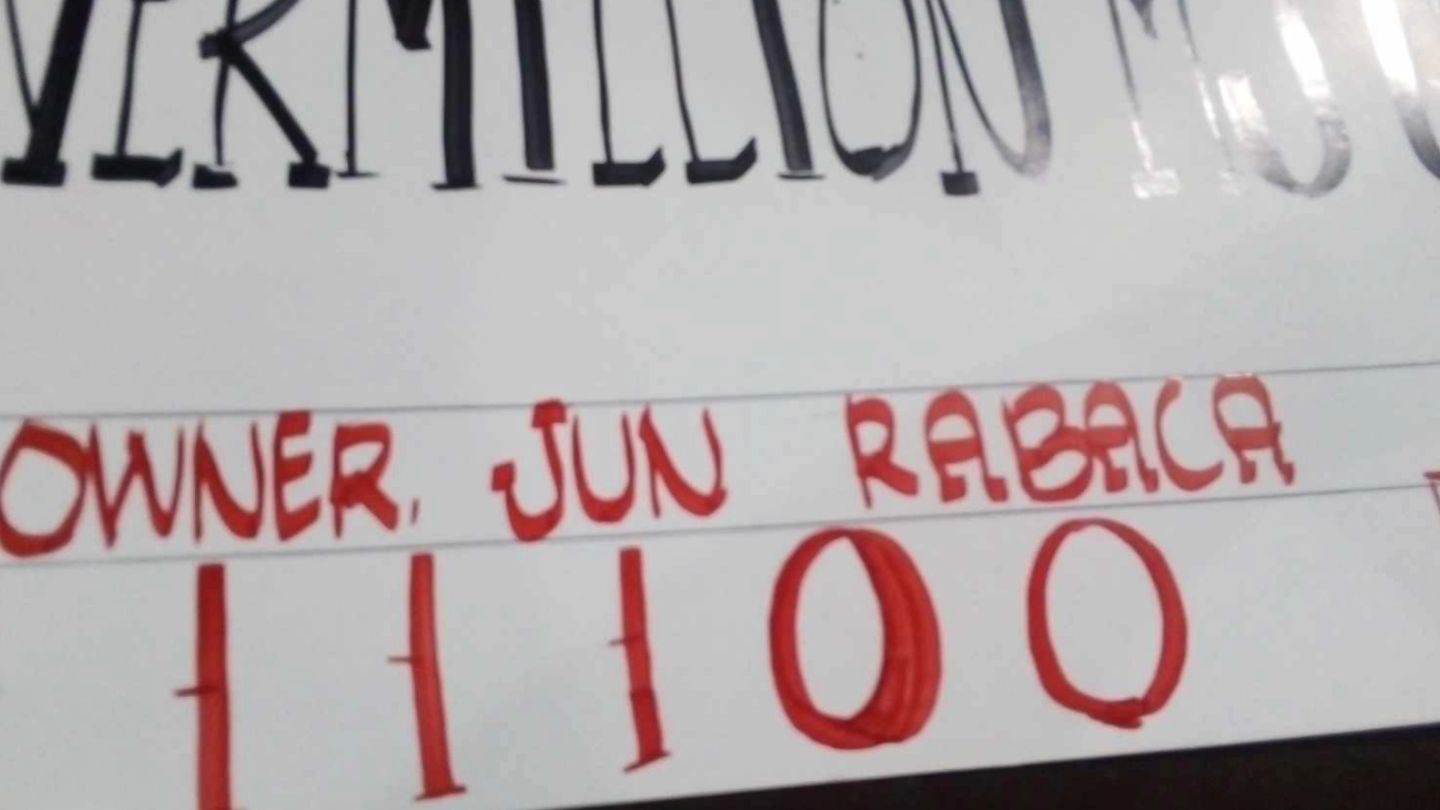 VERMILLION
OWNER, JUN RABACA
11100